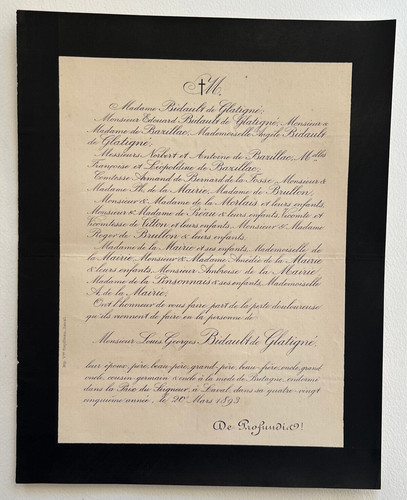 M,
Madame Bidault de Glatigné;
Monsieur Edouard Bidault de Glatigné; Monsieur &
Madame de Bazillac; Mademoiselle Angèle Bidault
de Glatigné;
Messieurs Norbert et Antoine de Bazillac, Melles
Françoise et Léopoldine de Bazillac;
Comtesse Armand de Bernard de la Fosse; Monsieur &
Madame Ph. de la Mairie; Madame de Brullon;
Monsieur & Madame de la Morlais et leurs enfants,
Monsieur & Madame de Réau & leurs enfants, Vicomte et
Vicomtesse de Villon et leurs enfants, Monsieur & Madame
Roger de Brullon & leurs enfants;
Madame de la Mairie et ses enfants, Mademoiselle de
la Mairie, Monsieur & Madame Amédée de la Mairie
& leurs enfants, Monsieur Ambroise de la Mairie,
Madame de la Tinsonnais & ses enfants, Mademoiselle
A. de la Mairie;
Ont l'honneur de vous faire part de la perte douloureuse
qu'ils viennent de faire en la personne de
Monsieur Louis Georges Bidault de Glatigné
leur époux, père, beau-père, grand-père, beau-frère, oncle, grand
oncle, cousin-germain & oncle à la mode de Bretagne, endormi
dans la Paix du Seigneur, à Laval, dans sa quatre-vingt
cinquième année, le 20 Mars 1893
De Profundis!